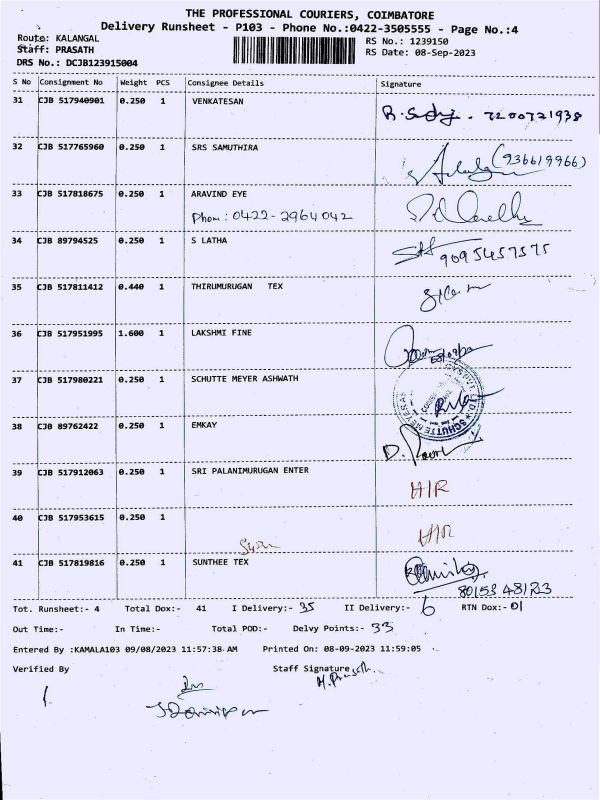 THE PROFESSIONAL COURIERS, COIMBATORE
Delivery Runsheet - P103 - Phone No.:0422-3505555 - Page No.:4
Route: KALANGAL RS No.: 1239150
Staff: PRASATH RS Date: 08-Sep-2023
DRS No.: DCJB123915004
S No Consignment No Weight PCS Consignee Details Signature
31 CJB 517940901 0.250 1 VENKATESAN
7200721938
32 CJB 517765960 0.250 1 SRS SAMUTHIRA
(936619966)
33 CJB 517818675 0.250 1 ARAVIND EYE
Phon: 0422-2964042
34 CJB 89794525 0.250 1 S LATHA
9095457575
35 CJB 517811412 0.440 1 THIRUMURUGAN TEX
36 CJB 517951995 1.600 1 LAKSHMI FINE
37 CJB 517980221 0.250 1 SCHUTTE MEYER ASHWATH
SCHUTTE MEYER
38 CJB 89762422 0.250 1 EMKAY
39 CJB 517912063 0.250 1 SRI PALANIMURUGAN ENTER
H/R
40 CJB 517953615 0.250 1
H/R
41 CJB 517819816 0.250 1 SUNTHEE TEX
80153 48123
Tot. Runsheet:- 4 Total Dox:- 41 I Delivery:- 35 II Delivery:- 6 RTN Dox:- 01
Out Time:- In Time:- Total POD:- Delvy Points:- 33
Entered By :KAMALA103 09/08/2023 11:57:38 AM Printed On: 08-09-2023 11:59:05
Verified By Staff Signature
M. Prasath